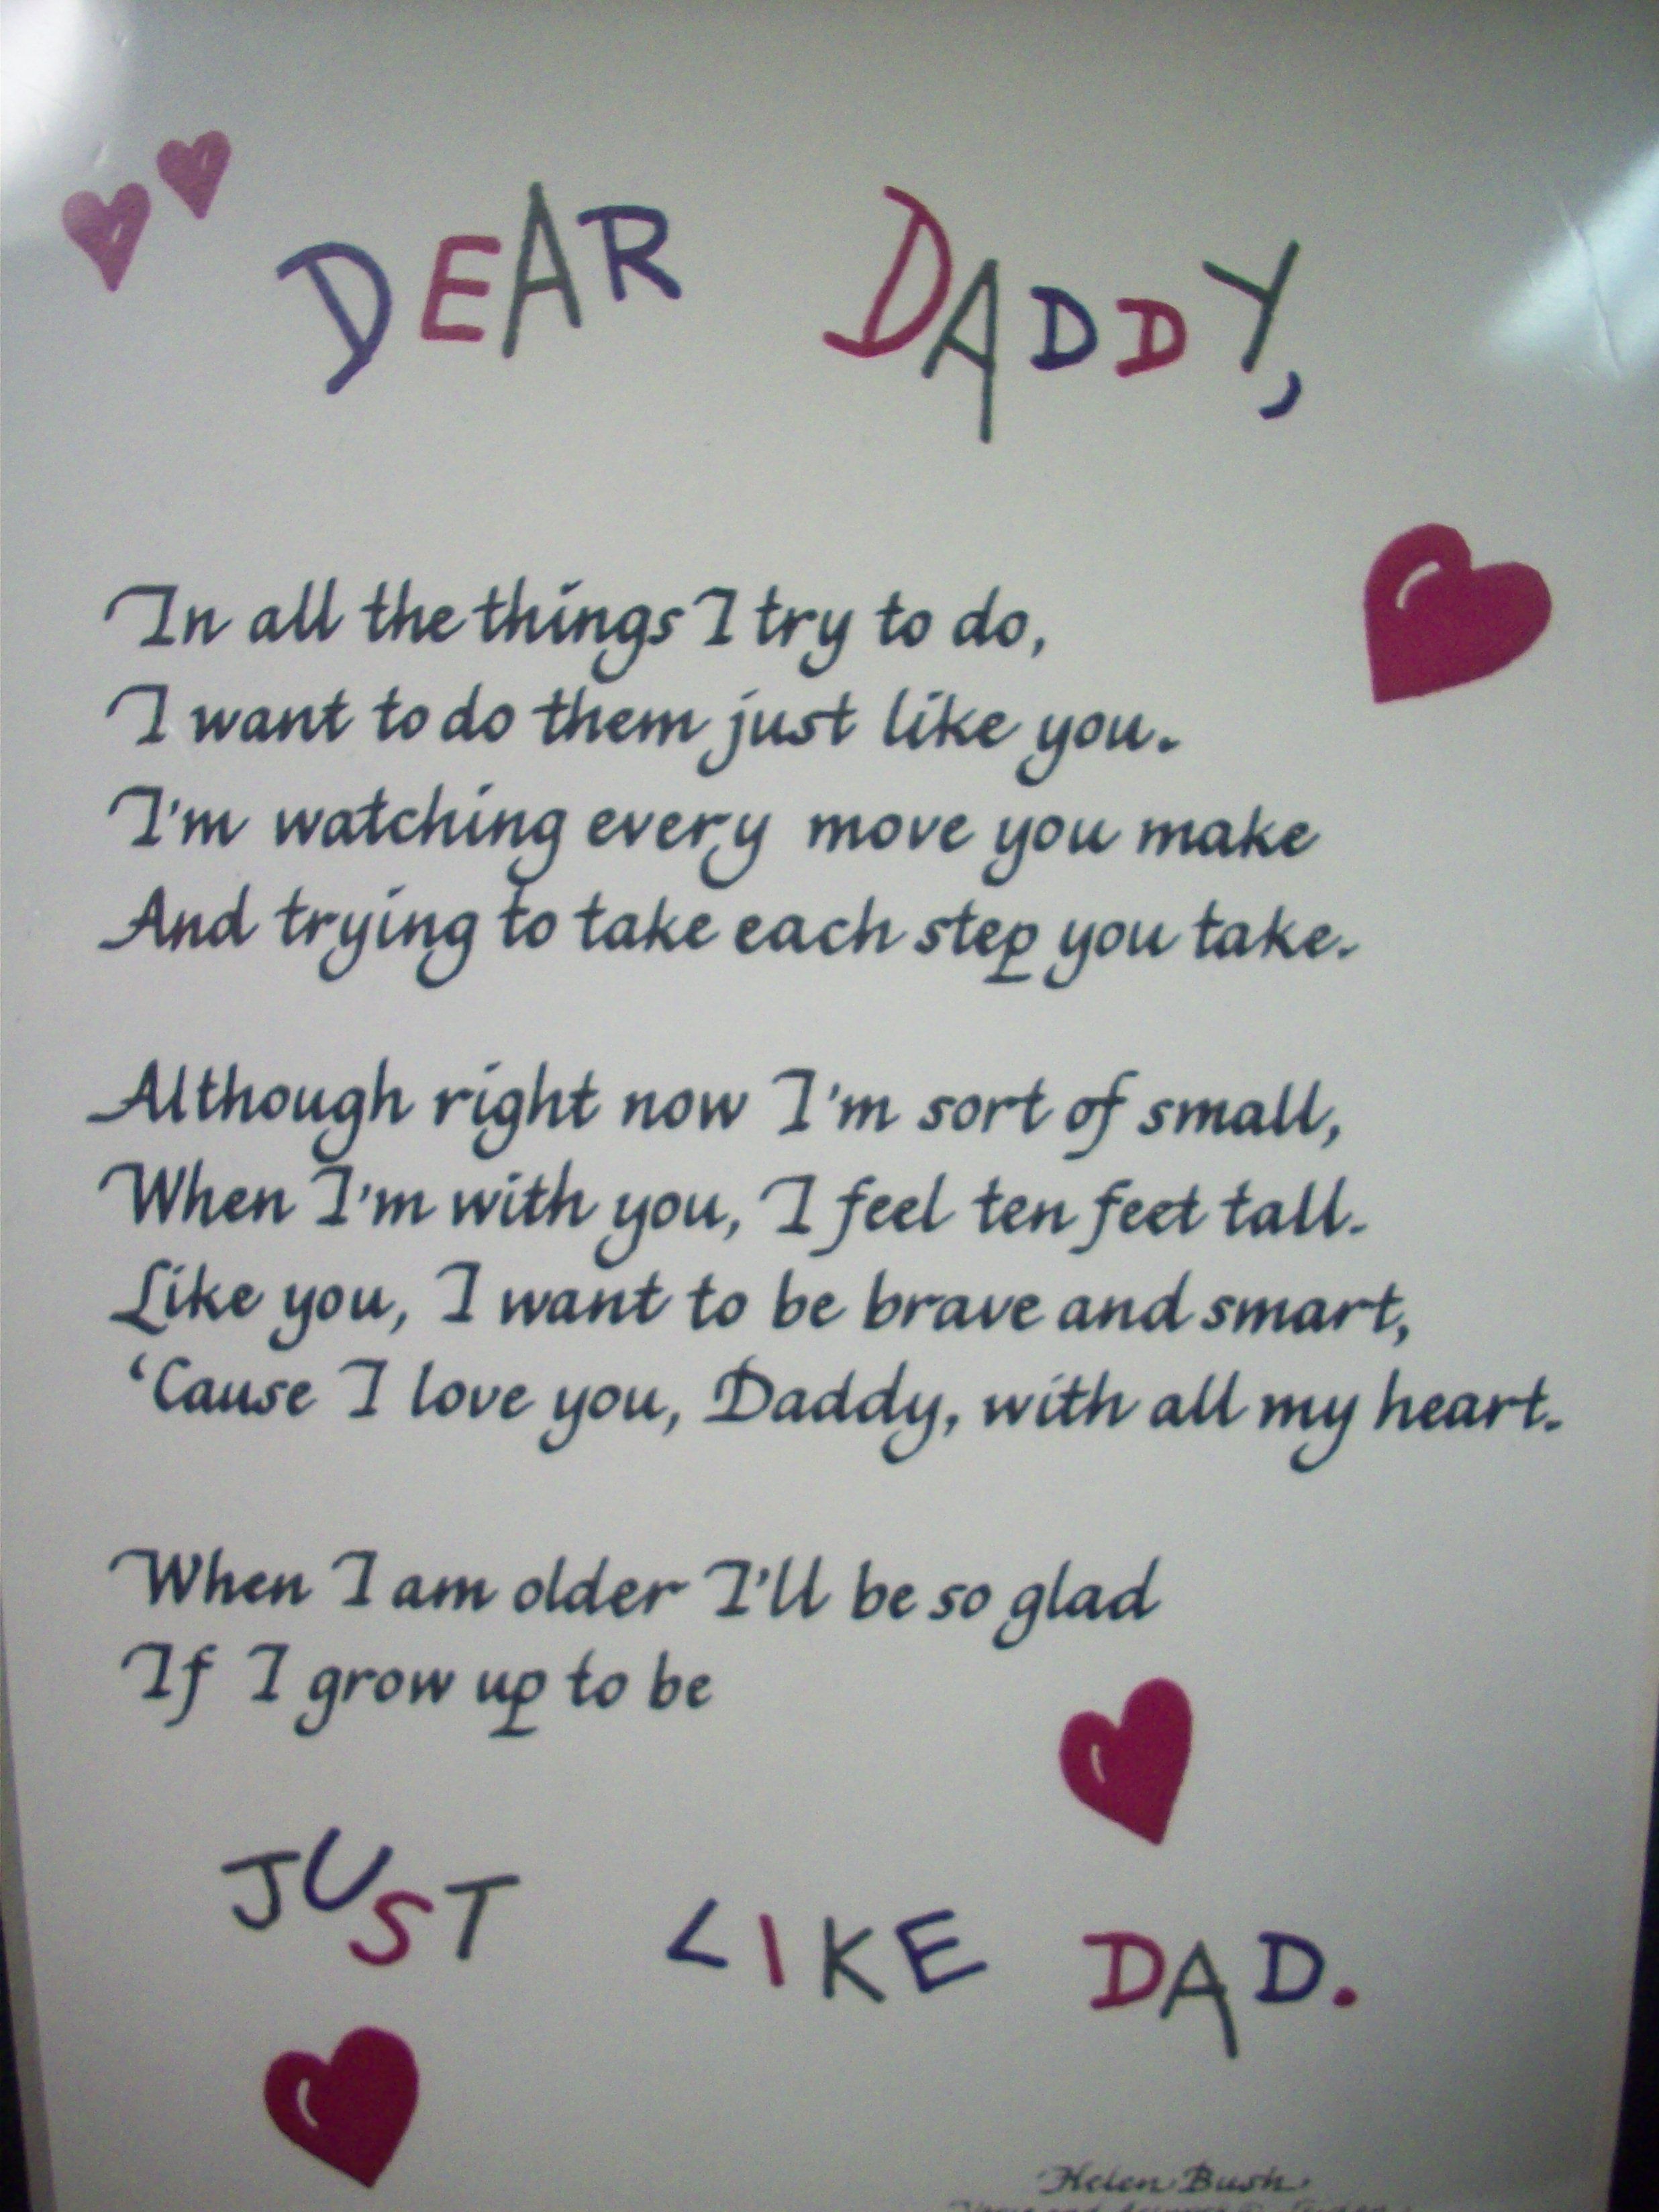 DEAR DADDY,
In all the things I try to do,
I want to do them just like you.
I'm watching every move you make
And trying to take each step you take.
Although right now I'm sort of small,
When I'm with you, I feel ten feet tall.
Like you, I want to be brave and smart,
‘Cause I love you, Daddy, with all my heart.
When I am older I'll be so glad
If I grow up to be
JUST LIKE DAD.
Helen Bush